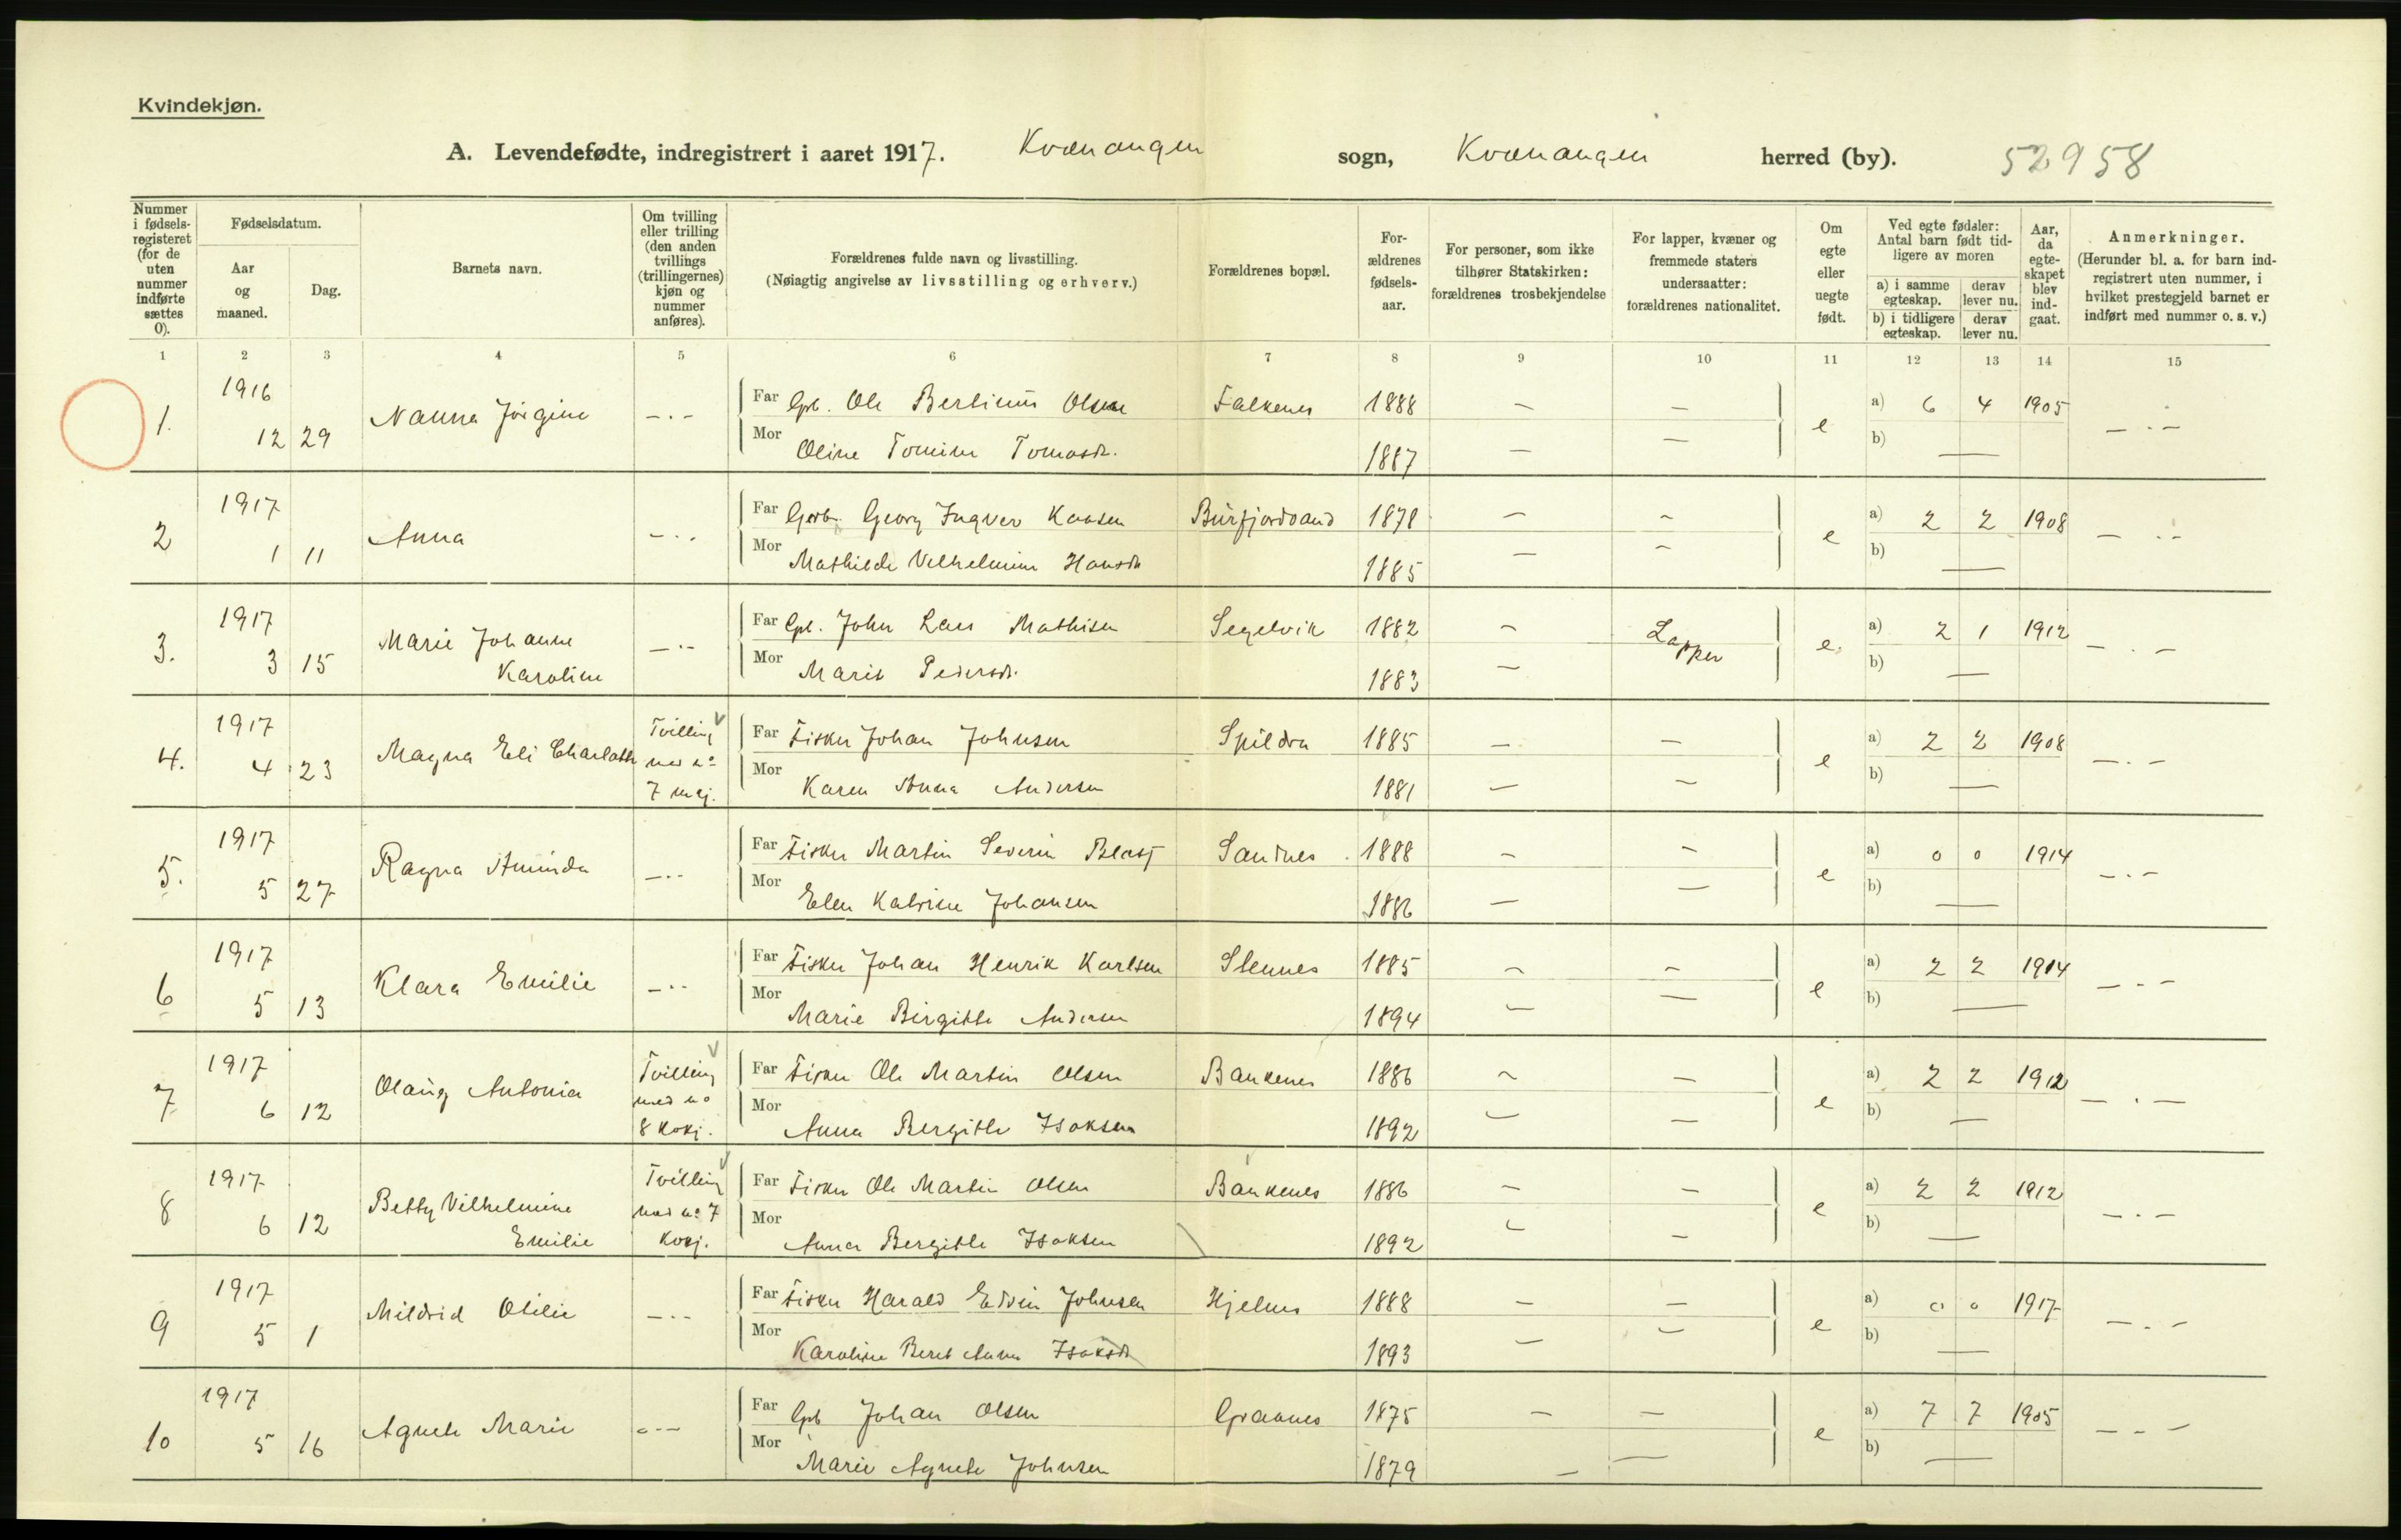 Kvindekjøn.
A. Levendefødte, indregistrert i aaret 1917. Kvænangen sogn, Kvænangen herred (by). 52958
Nummer i fødsels-registeret (for de uten nummer indførte sættes 0).
Fødselsdatum.
Aar og maaned.
Dag.
Barnets navn.
Om tvilling eller trilling (den anden tvillings (trillingernes) kjøn og nummer anføres).
Forældrenes fulde navn og livsstilling.
(Nøiagtig angivelse av livsstilling og erhverv.)
Forældrenes bopæl.
For-ældrenes fødsels-aar.
For personer, som ikke tilhører Statskirken: forældrenes trosbekjendelse
For lapper, kvæner og fremmede staters undersaatter: forældrenes nationalitet.
Om egte eller uegte født.
Ved egte fødsler: Antal barn født tid-ligere av moren
a) i samme egteskap.
derav lever nu.
b) i tidligere egteskap.
derav lever nu.
Aar, da egte-skapet blev ind-gaat.
Anmerkninger.
(Herunder bl. a. for barn ind-registrert uten nummer, i hvilket prestegjeld barnet er indført med nummer o. s. v.)
1 2 3 4 5 6 7 8 9 10 11 12 13 14 15
1. 1916 12 29 Nanna Jörgine — Far Gpb. Ole Olsen Falkenes 1888 — — e a) 6 4 1905
Mor Oline Tomine Tomasd. 1887 — — b) —
2 1917 1 11 Anna — Far Georg Ingver Burfjordvand 1878 — — e a) 2 2 1908
Mor Mathilde Vilhelmine Hansd. 1885 — — b) —
3. 1917 3 15 Marie Johanne Karoline — Far John Lars Mathisen Segelvik 1882 — Lapper e. a) 2 1 1912
Mor Marit Pedersd. 1883 — b) —
4. 1917 4 23 Magna Eli Charlotte Tvilling med no 7 Far Fisker Johan Johnsen Spildra 1885 — — e a) 2 2 1908
Mor Karen Anna Andersen 1881 — — b) —
5. 1917 5 27 Ragna Aminda — Far Fisker Martin Severin Sandnes 1888 — — e a) 0 0 1914
Mor Elen Katrine Johansen 1886 — — b) —
6 1917 5 13 Klara Emilie — Far Fisker Johan Henrik Karlsen Stennes 1885 — — e a) 2 2 1914
Mor Marie Birgitte Andersen 1894 — — b) —
7 1917 6 12 Olaug Antonia Tvilling med no 8 kvkj. Far Fisker Ole Martin Olsen Bankenes 1886 — — e a) 2 2 1912
Mor Anna Bergitte Isaksen 1892 — — b) —
8 1917 6 12 Betty Vilhelmine Emilie Tvilling med no 7 kvkj. Far Fisker Ole Martin Olsen Bankenes 1886 — — e a) 2 2 1912
Mor Anna Bergitte Isaksen 1892 — — b) —
9 1917 5 1 Mildrid Otilie — Far Fisker Harald Edvin Johnsen 1888 — — e a) 0 0 1917
Mor Karoline Berit Anna Isaksd. 1893 — — b) —
10 1917 5 16 Agnete Marie — Far Gpb Johan Olsen 1875 — — e a) 7 7 1905
Mor Marie Agnete Johnsen 1879 — — b) —